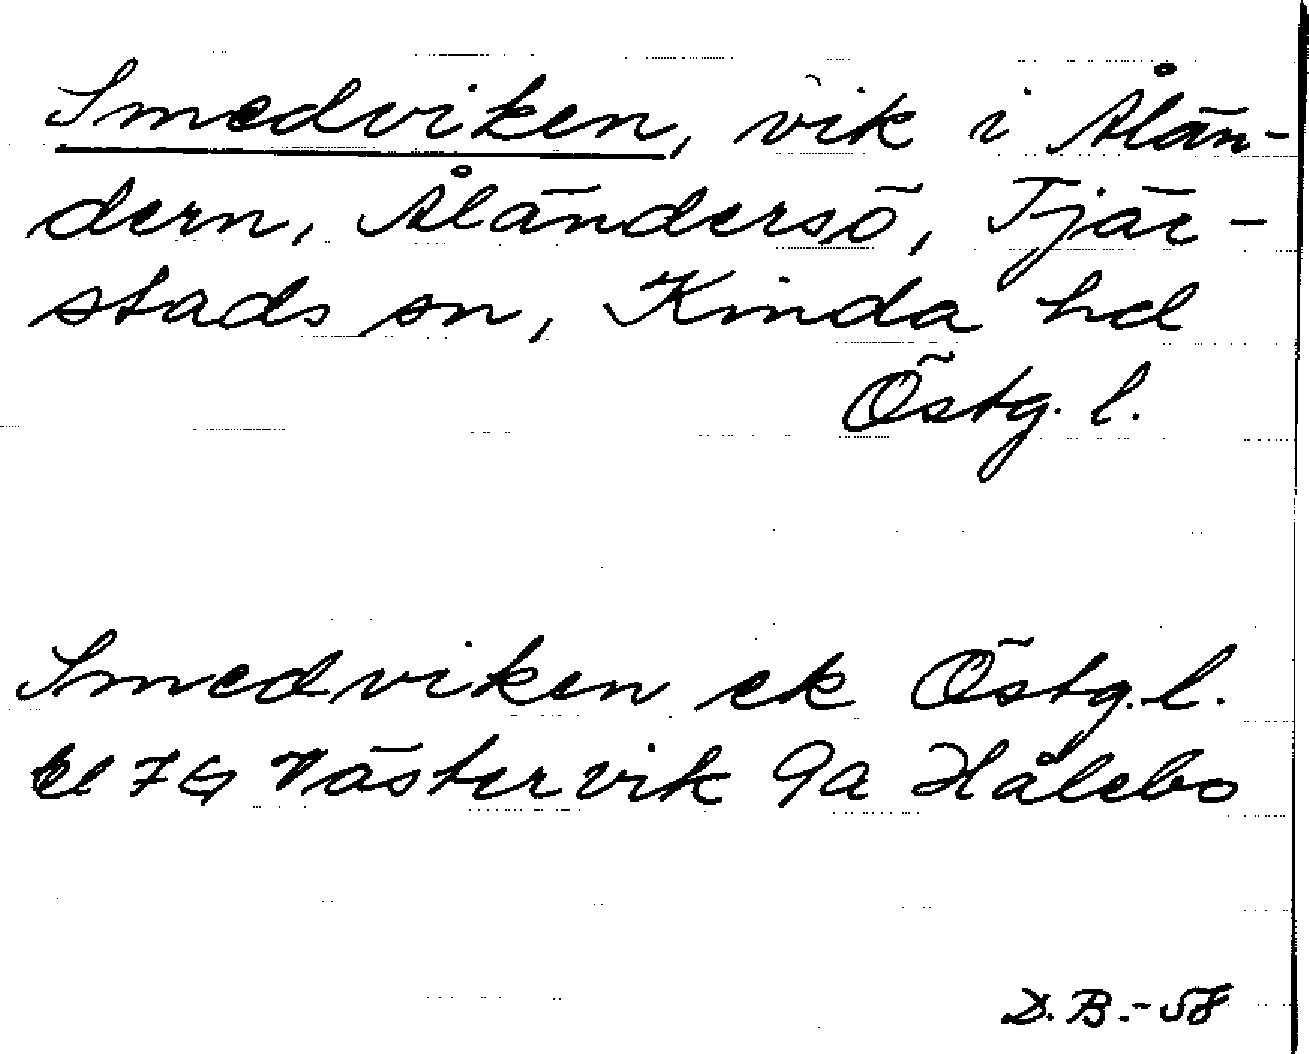 Smedviken, vik i Ålän-
dern, Åländersö, Tjär-
stads sn, Kinda hd
Östg. l.
Smedviken ek Östg. l.
7G Västervik 9a Hålebo
D. B. - 58